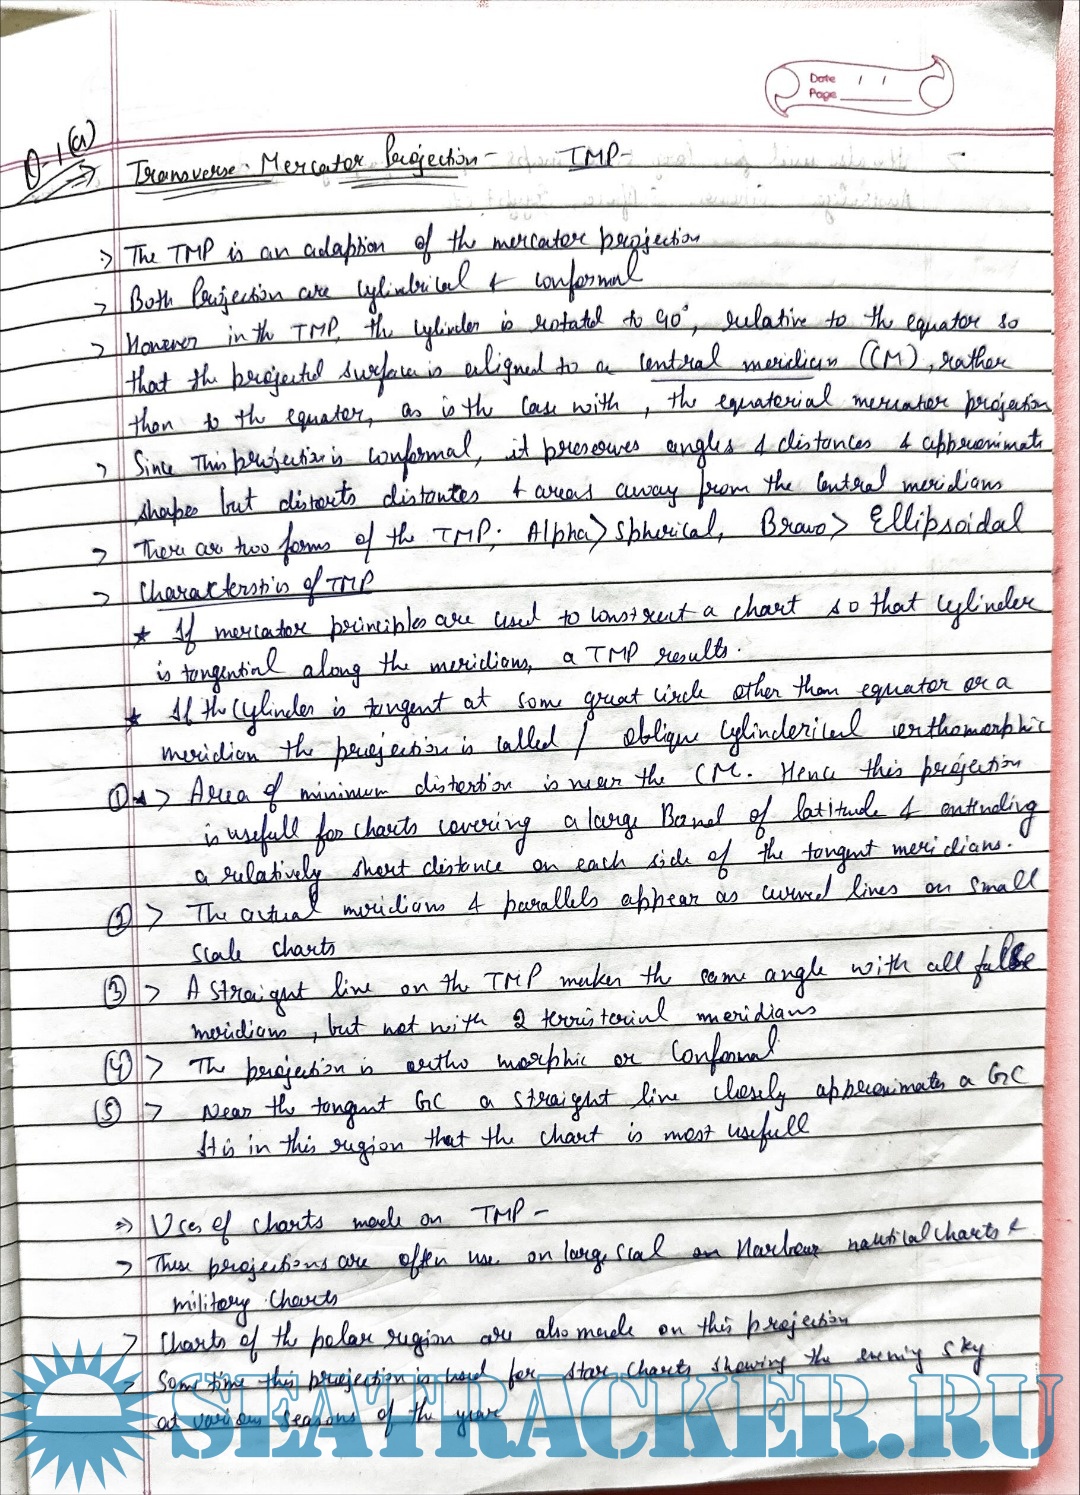 Date / /
Page
Q-1(a)
Transverse Mercator Projection - TMP-
The TMP is an adaption of the mercator projection
Both Projection are cylindrical & conformal
However in th TMP, the cylinder is rotated to 90°, relative to the equator so
that the projected surface is aligned to a central meridian (CM), rather
than to the equator, as is the case with, the equatorial mercator projection
Since This projection is conformal, it preserves angles & distances & approximate
shapes but distorts distantes & areas away from the central meridians
There are two forms of the TMP: Alpha > Spherical, Bravo > Ellipsoidal
Characterstics of TMP
* If mercator principles are used to construct a chart so that cylinder
is tangential along the meridians, a TMP results.
* If the cylinder is tangent at some great circle other than equator or a
meridian the projection is called / oblique cylinderical orthomorphic
① > Area of minimum distortion is near the CM. Hence this projection
is usefull for charts covering a large Band of latitude & extending
a relatively short distance on each side of the tangent meridians.
② > The actual meridians & parallels appear as curved lines on small
scale charts
③ > A straight line on the TMP makes the same angle with all false
meridians, but not with 2 terristerial meridians
④ > The projection is ortho morphic or Conformal
⑤ > Near the tangent GC a straight line closely approximates a GC
It is in this region that the chart is most usefull
⇒ Uses of charts made on TMP -
> These projections are often use on large scal on Harbour nautical charts &
military charts
> Charts of the polar region are also made on this projection
> Some time this projection is used for star charts showing the evening sky
at various seasons of the year
SEATRACKER.RU